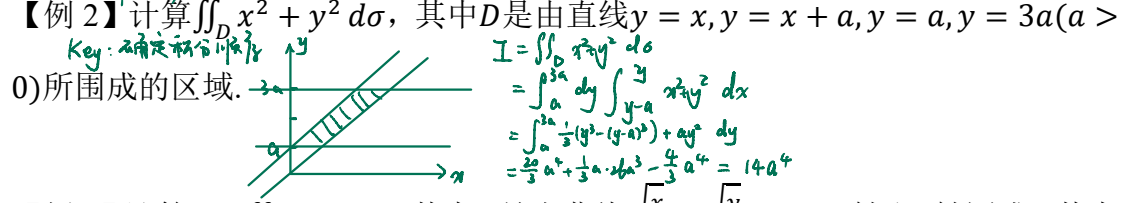 【例 2】计算∬_D x² + y² dσ，其中D是由直线y = x, y = x + a, y = a, y = 3a(a >
Key：确定积分顺序
0)所围成的区域.
y
3a
a
x
I = ∬_D x²+y² dσ
= ∫_a^{3a} dy ∫_{y-a}^{y} x²+y² dx
= ∫_a^{3a} 1/3(y³-(y-a)³) + ay² dy
= 20/3 a⁴ + 1/3 a·26a³ - 4/3 a⁴ = 14a⁴